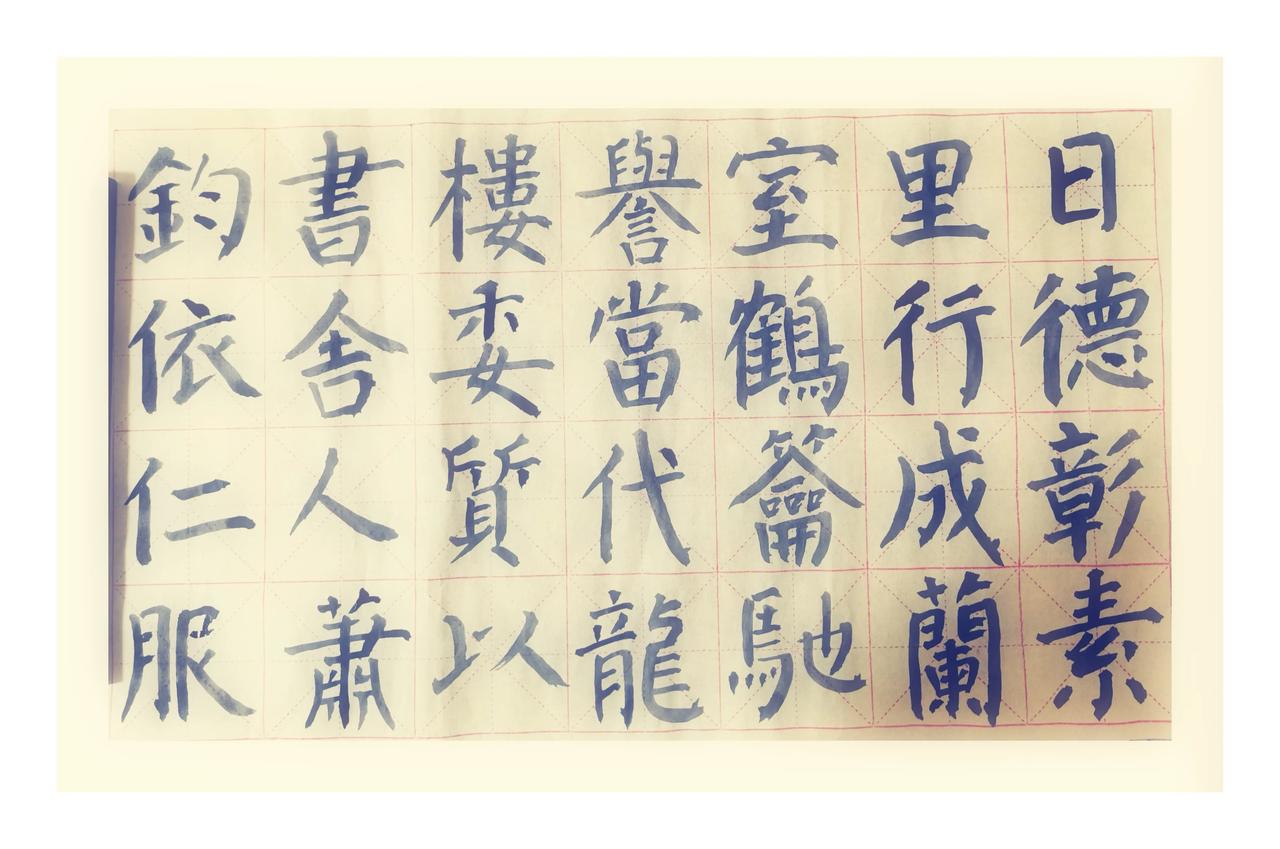 日德彰素
里行成蘭
室鶴籥馳
譽當代龍
樓委質以
書舍人蕭
鈞依仁服